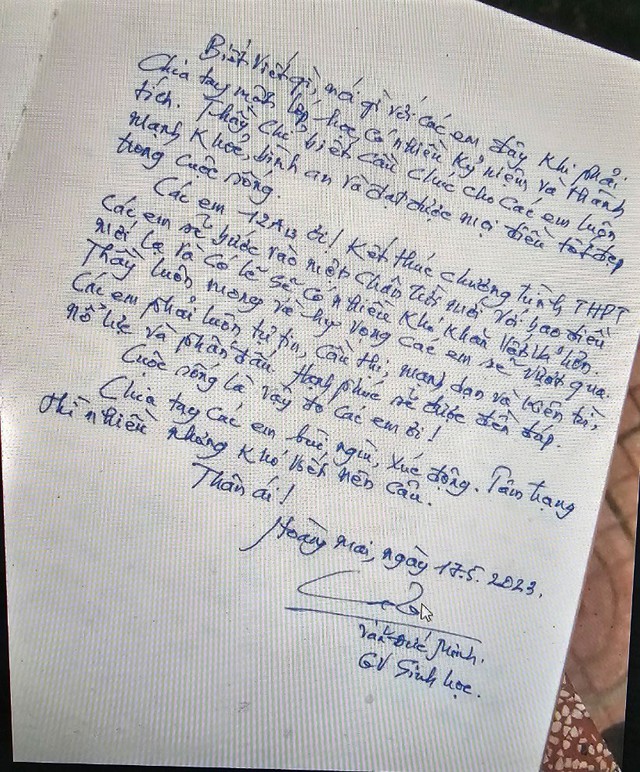 Biết viết gì, nói gì với các em đây khi phải
Chia tay một lớp học có nhiều kỷ niệm và thành
tích. Thầy chỉ biết cầu chúc cho các em luôn
mạnh khoẻ, bình an và đạt được mọi điều tốt đẹp
trong cuộc sống.
Các em 12A13 ơi! Kết thúc chương trình THPT
các em sẽ bước vào một chân trời mới với bao điều
mới lạ và có lẽ sẽ có nhiều khó khăn vất vả hơn.
Thầy luôn mong và hy vọng các em sẽ vượt qua.
Các em phải luôn tự tin, cầu thị, mạnh dạn và kiên trì,
nỗ lực và phấn đấu. Hạnh phúc sẽ được đền đáp.
Cuộc sống là vậy đó các em ơi!
Chia tay các em bùi ngùi, xúc động. Tâm trạng
thì nhiều nhưng khó viết nên câu.
Thân ái!
Hoàng Mai, ngày 17.5.2023.
Văn Đức Minh.
GV Sinh học.